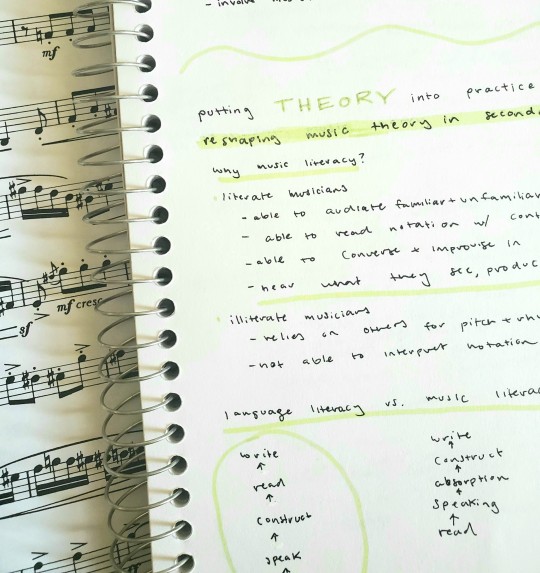 - involve
putting THEORY into practice
reshaping music theory in second
why music literacy?
literate musicians
- able to audiate familiar + unfamiliar
- able to read notation w/ cont
- able to converse + improvise in
- hear what they see, produc
illiterate musicians
- relies on others for pitch + rhy
- not able to interpret notation
language literacy vs. music literac
write
↑
read
↑
construct
↑
speak
↑
write
↑
construct
↑
absorption
↑
speaking
↑
read
mf
mf cresc
sf